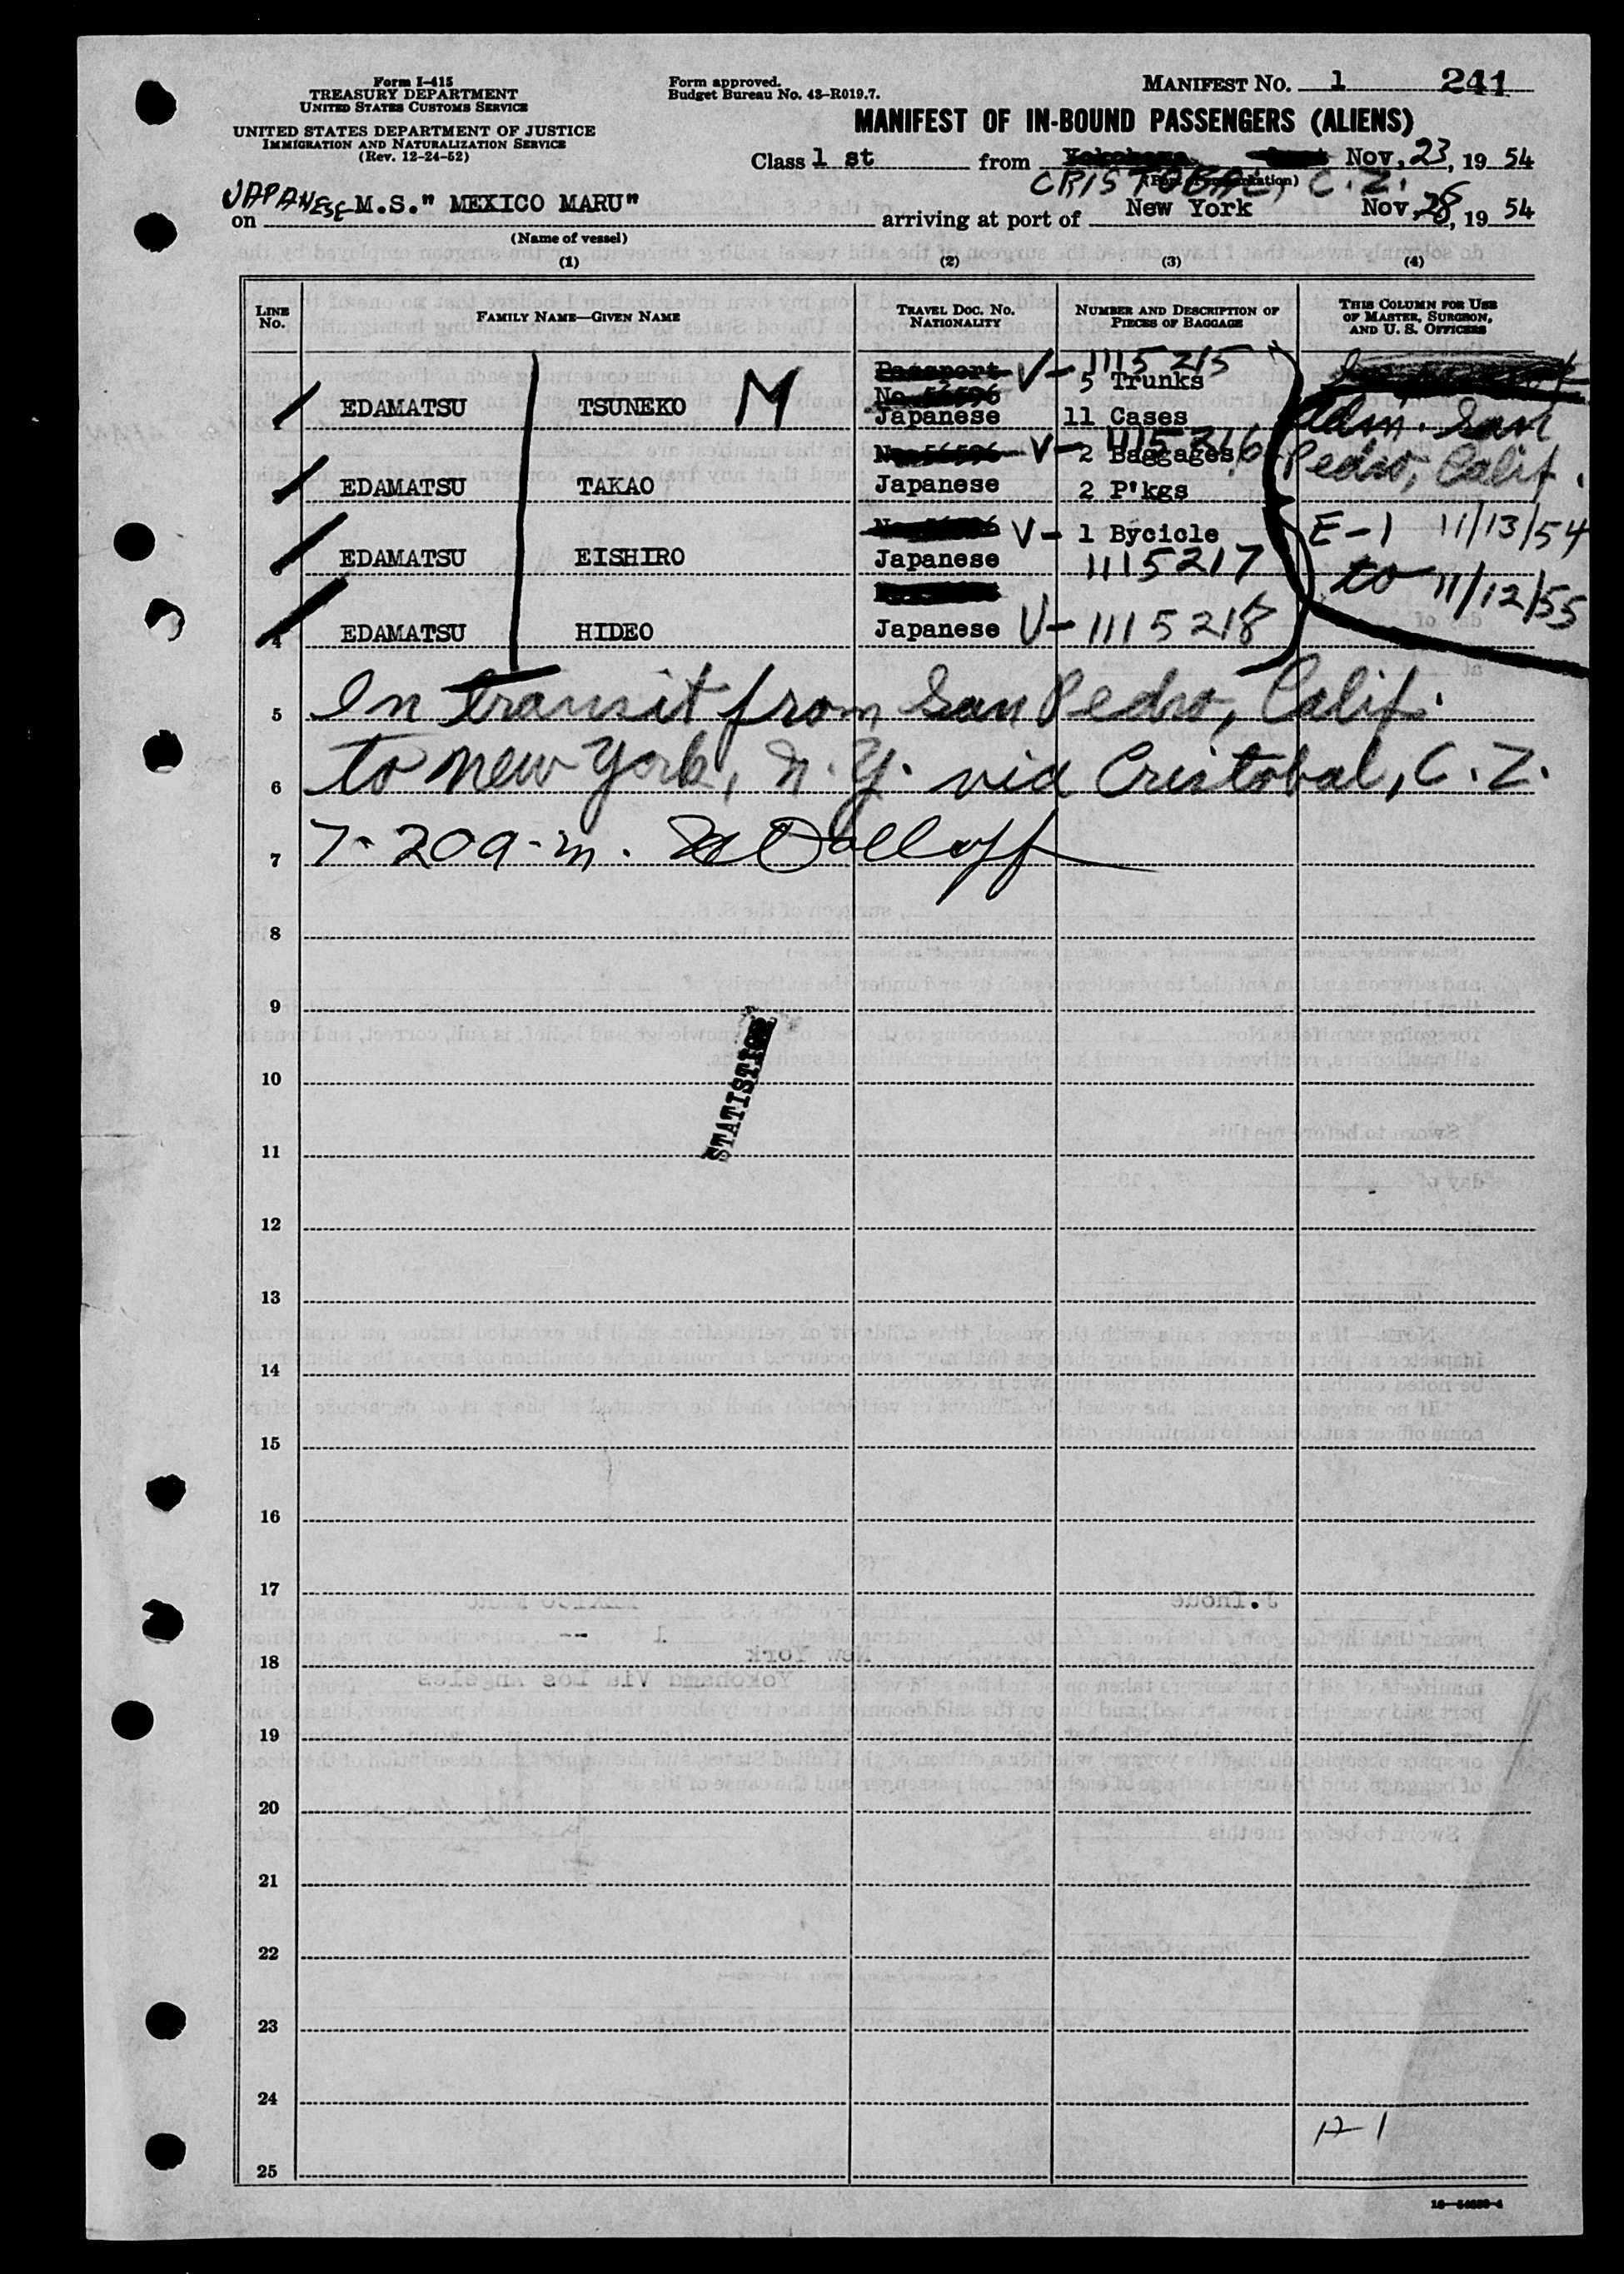 Form I-415
TREASURY DEPARTMENT
UNITED STATES CUSTOMS SERVICE
UNITED STATES DEPARTMENT OF JUSTICE
IMMIGRATION AND NATURALIZATION SERVICE
(Rev. 12-24-52)
Form approved.
Budget Bureau No. 43-R019.7.
MANIFEST NO. 1 241
MANIFEST OF IN-BOUND PASSENGERS (ALIENS)
Class 1 st from Yokohama Nov, 23, 1954
CRISTOBAL, C.Z.
on JAPANESE M.S." MEXICO MARU" arriving at port of New York Nov, 28, 1954
(Name of vessel)
(1) (2) (3) (4)
LINE No. FAMILY NAME—GIVEN NAME TRAVEL DOC. NO. NATIONALITY NUMBER AND DESCRIPTION OF PIECES OF BAGGAGE THIS COLUMN FOR USE OF MASTER, SURGEON, AND U. S. OFFICERS
Passport V- 1115215
No. 56596 5 Trunks
EDAMATSU TSUNEKO M Japanese 11 Cases Adm. San
V- 1115216 2 Baggages Pedro, Calif.
EDAMATSU TAKAO Japanese 2 P'kgs
V- 1 Bycicle E-1 11/13/54
3 EDAMATSU EISHIRO Japanese 1115217 to 11/12/55
4 EDAMATSU HIDEO Japanese V-1115218
5 In transit from San Pedro, Calif.
6 to New York, N.Y. via Cristobal, C.Z.
7 7-20 a.m.
8
9
10
STATISTICS
11
12
13
14
15
16
17
18
19
20
21
22
23
24
A-1
25